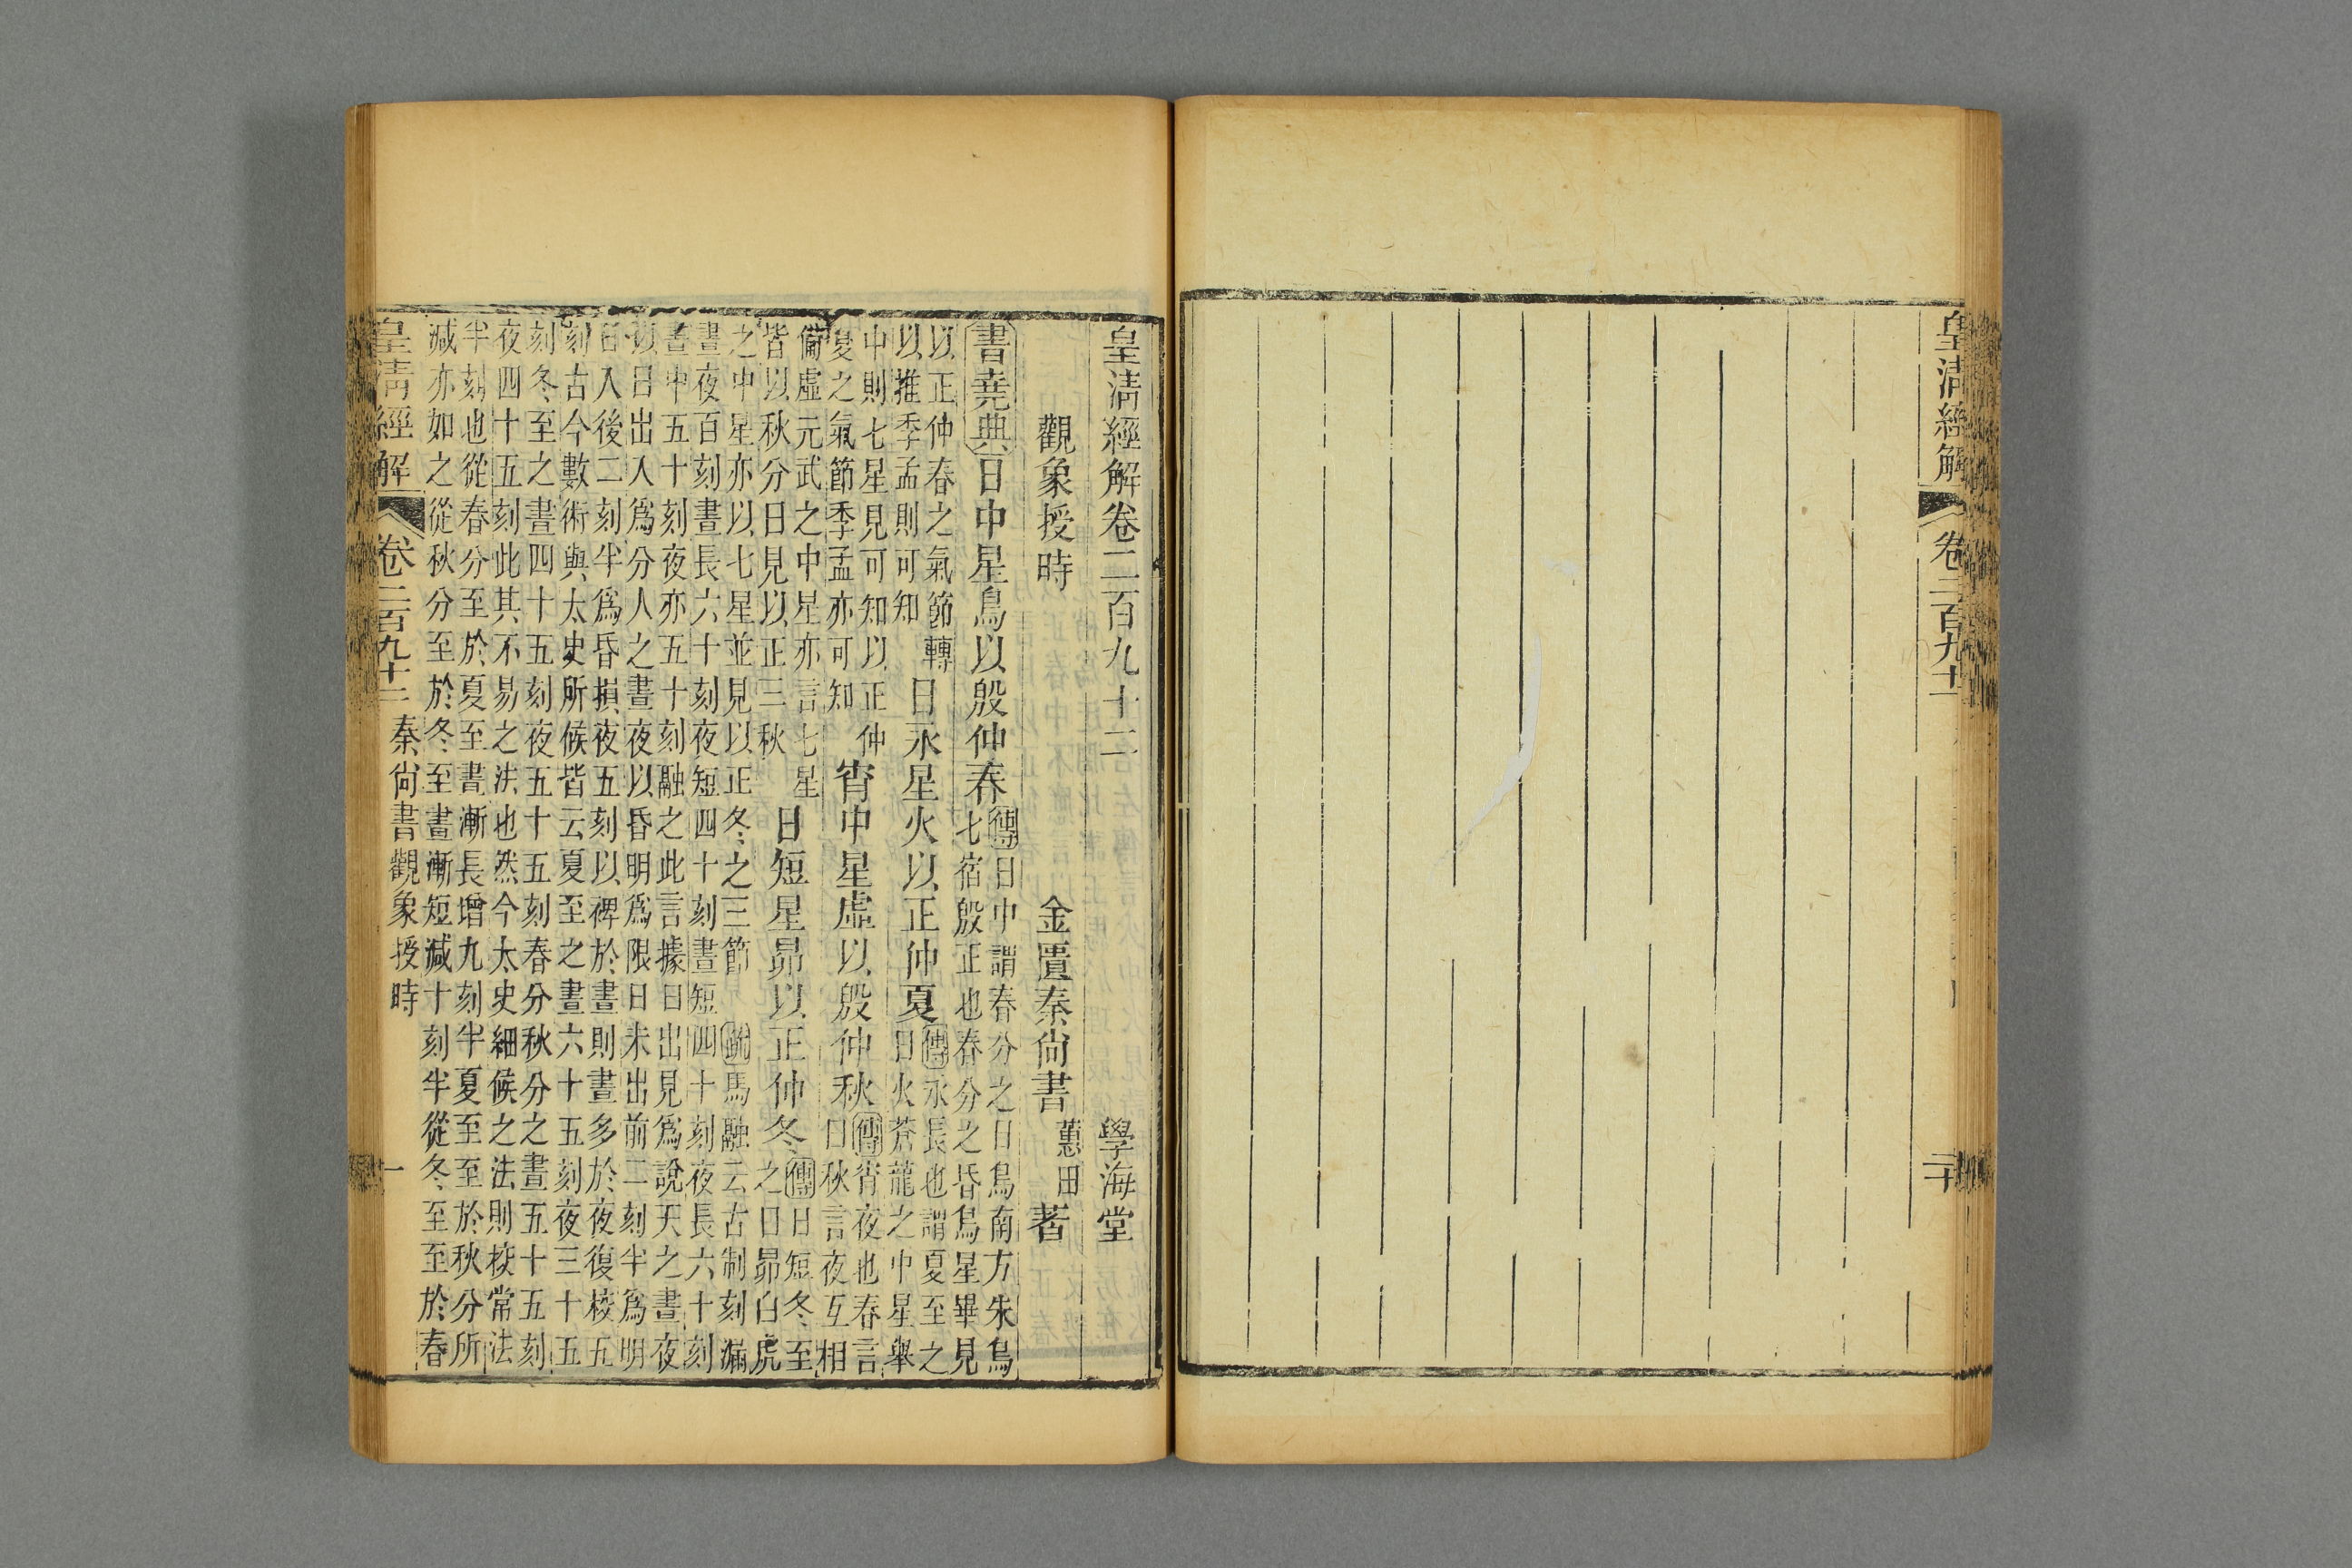 皇清經解
卷二百九十一
二十
皇清經解卷二百九十二
學海堂
觀象授時
金匱秦尚書蕙田著
書堯典日中星鳥以殷仲春
傳日中謂春分之日鳥南方朱鳥
七宿殷正也春分之昏鳥星畢見
以正仲春之氣節轉
以推季孟則可知
日永星火以正仲夏
傳永長也謂夏至之
日火蒼龍之中星舉
中則七星見可知以正仲
夏之氣節季孟亦可知
宵中星虛以殷仲秋
傳宵夜也春言
日秋言夜互相
備虛元武之中星亦言七星
皆以秋分日見以正三秋
日短星昴以正仲冬
傳日短冬至
之日昴白虎
之中星亦以七星並見以正冬之三節疏馬融云古制刻漏
晝夜百刻晝長六十刻夜短四十刻晝短四十刻夜長六十刻
晝中五十刻夜亦五十刻融之此言據日出見為說天之晝夜
以日出入為分人之晝夜以昏明為限日未出前二刻半為明
日入後二刻半為昏損夜五刻以裨於晝則晝多於夜復校五
刻古今數術與太史所候皆云夏至之晝六十五刻夜三十五
刻冬至之晝四十五刻夜五十五刻春分秋分之晝五十五刻
夜四十五刻此其不易之法也然今太史細候之法則校常法
半刻也從春分至於夏至晝漸長增九刻半夏至至於秋分所
減亦如之從秋分至於冬至晝漸短減十刻半從冬至至於春
皇清經解
卷二百九十二
秦尚書觀象授時
一